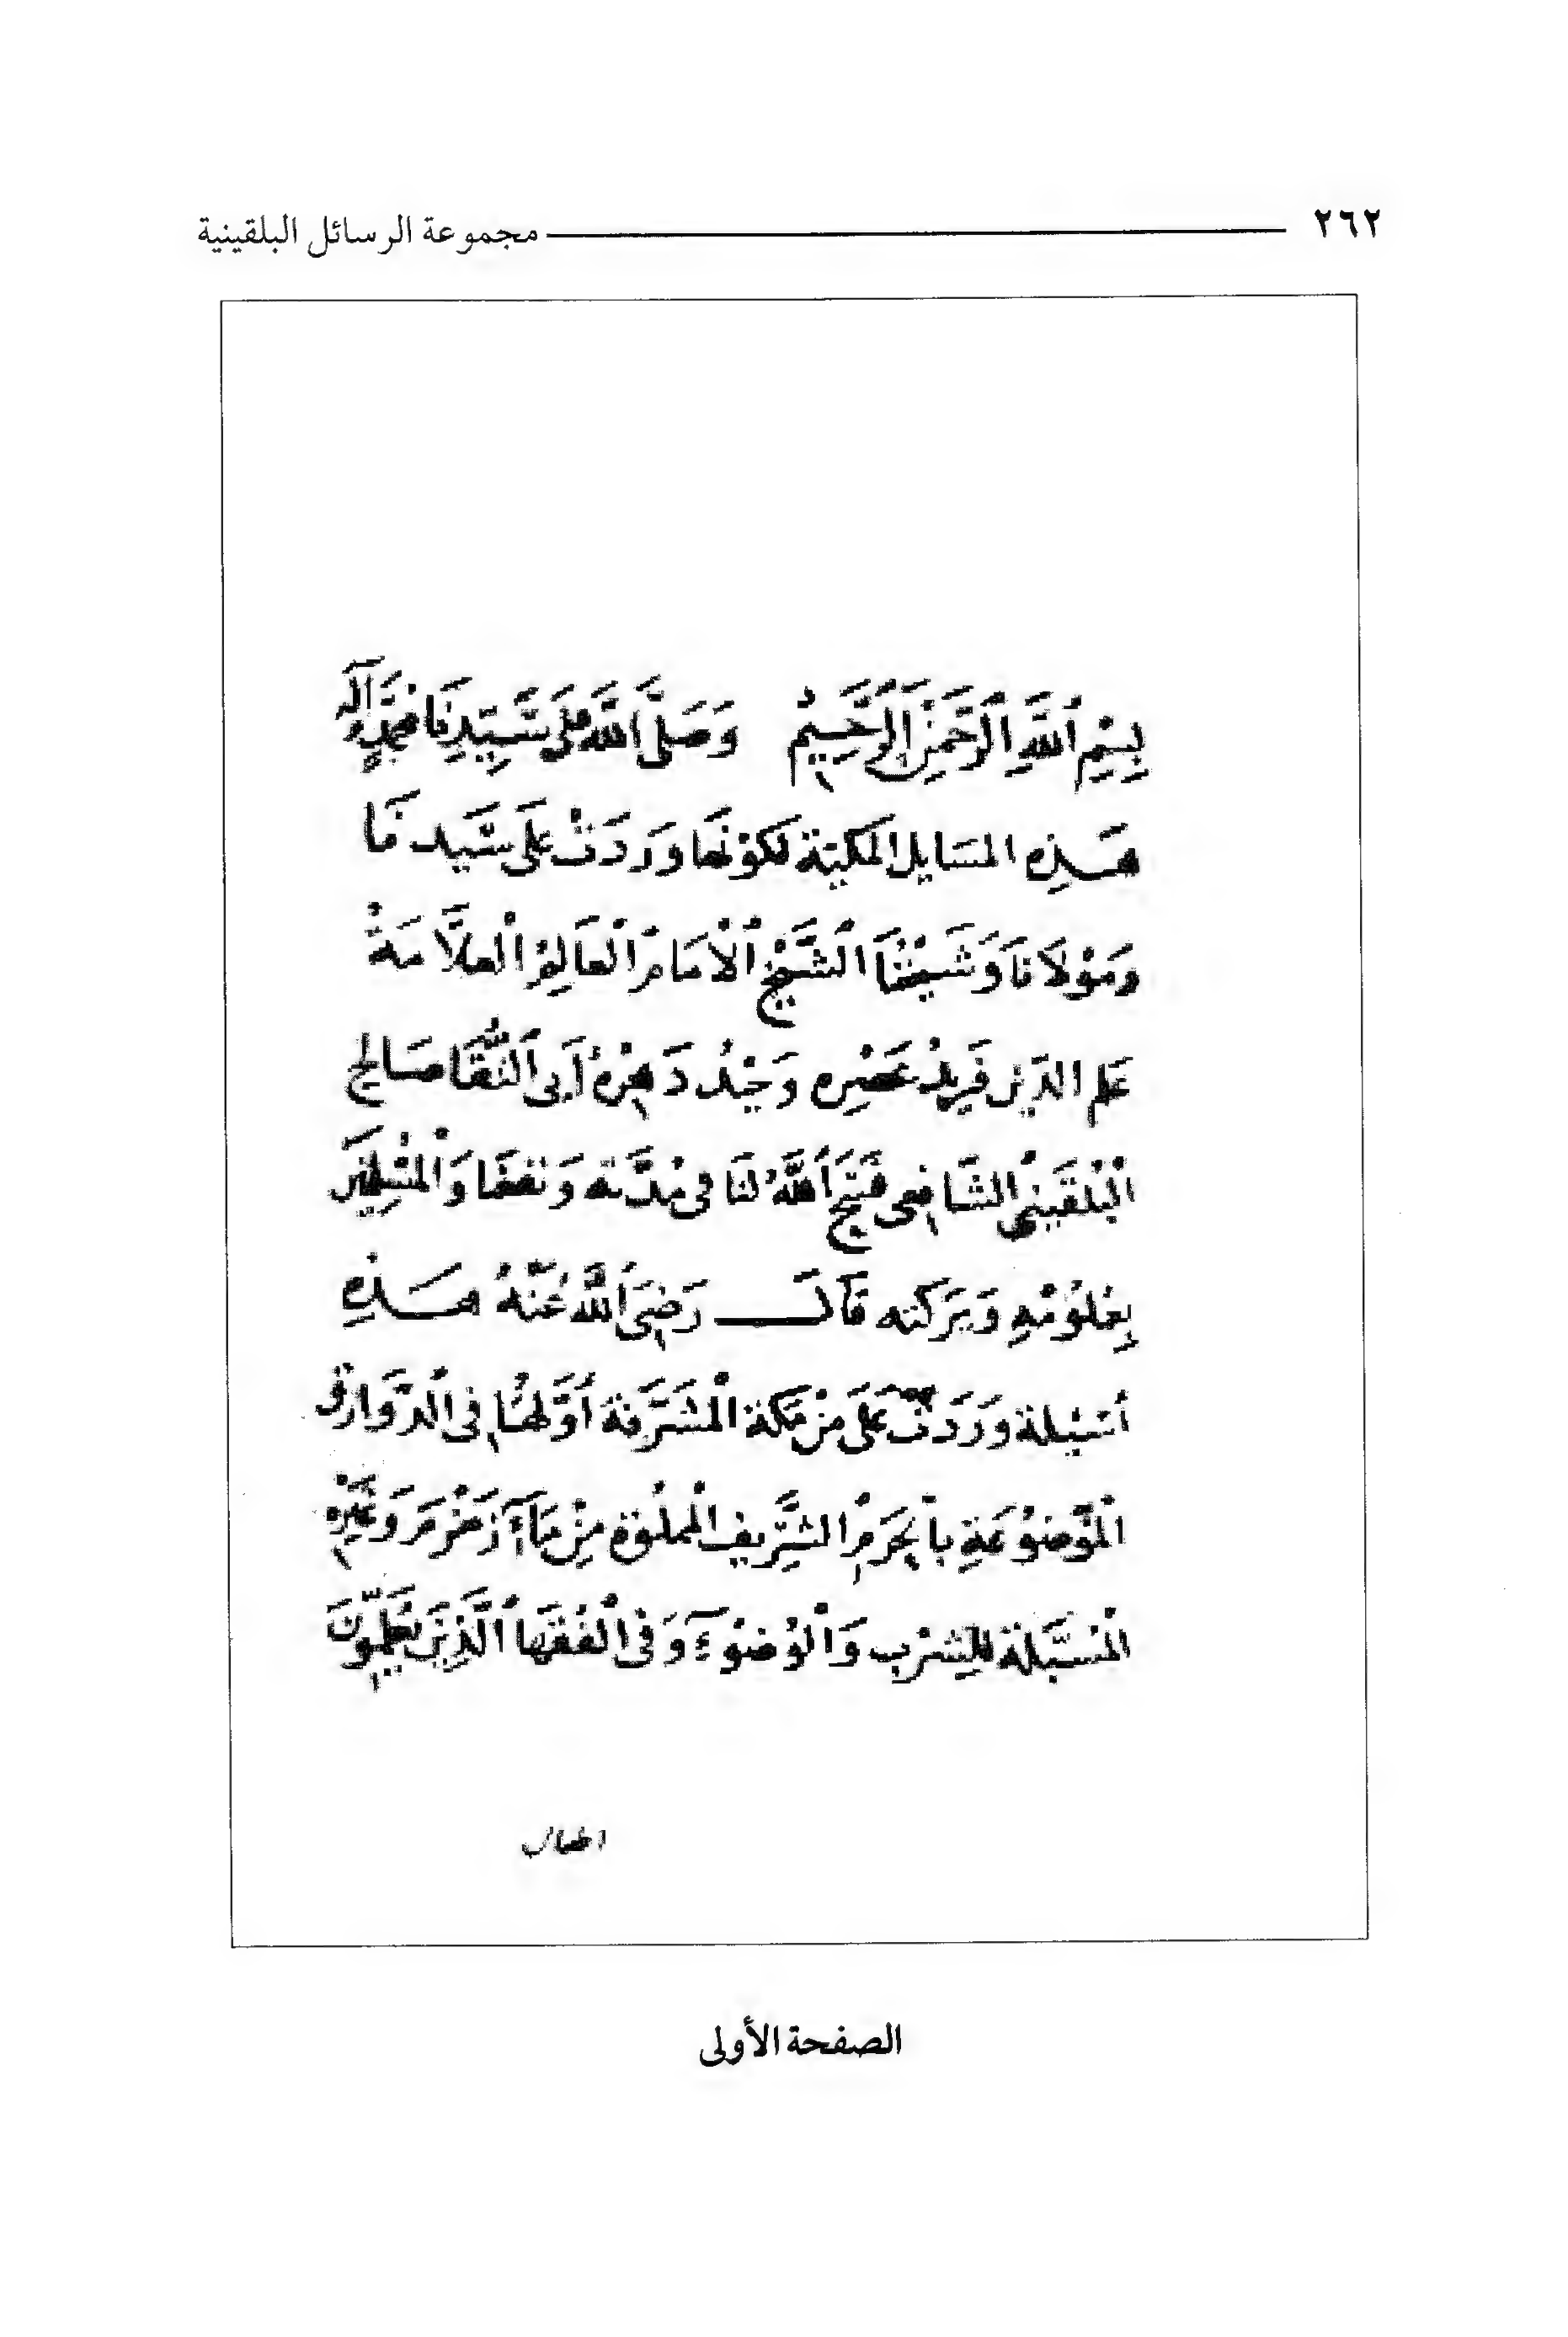 ٢٦٢ مجموعة الرسائل البلقينية
بِسْمِ اللَّهِ الرَّحْمَنِ الرَّحِيمِ وَصَلَّى اللَّهُ عَلَى سَيِّدِنَا مُحَمَّدٍ وَآلِهِ
هَذِهِ المسَايل المَكيّة لكَوْنهَا وَرَدَتْ عَلَى سَيِّدنَا
وَمَوْلَانَا وَشَيْخُنَا الشَّيْخ الْأمَامَ الْعَالِمُ الْعلَّامَةُ
عَلم الدّين فَرِيدُ عَصْرِه وَحِيْدُ دَهْرِهُ أَبى الْتُّقَا صَالح
الْبُلْقَيِني الشَّافِعى فَتَحَ اللَّهُ لنَا فى مُدَّته وَنفعَنَا وَالْمُسْلِمِيْنَ
بِعُلُوْمِهِ وَبَرَكته قَالَ رَضِىَ اللَّهُ عَنْهُ هَذِهِ
أَسْئِلة وَرَدَتْ عَلَىَّ مِنْ مَكة الْمشَرَّفَة أَوَّلهُا فِى الْدَّوَارق
الْمَوْضُوْعَةِ بِالْحَرَمْ الشَّرِيف الْمملُوة مِنْ مَآءِ زَمْزَمَ وَغَيْرِهِ
الْمُسَبَّلَة لِلشُرْبِ وَالْوُضُوْءِ وَفى الْفُقَهَا الَّذِيْنَ يُعَلِّمُوْنَ
الصفحة الأولى